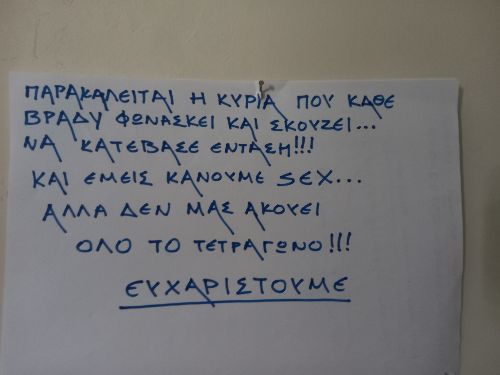 ΠΑΡΑΚΑΛΕΙΤΑΙ Η ΚΥΡΙΑ ΠΟΥ ΚΑΘΕ
ΒΡΑΔΥ ΦΩΝΑΣΚΕΙ ΚΑΙ ΣΚΟΥΖΕΙ...
ΝΑ ΚΑΤΕΒΑΣΕ ΕΝΤΑΣΗ!!!
ΚΑΙ ΕΜΕΙΣ ΚΑΝΟΥΜΕ SEX...
ΑΛΛΑ ΔΕΝ ΜΑΣ ΑΚΟΥΕΙ
ΟΛΟ ΤΟ ΤΕΤΡΑΓΩΝΟ!!!
ΕΥΧΑΡΙΣΤΟΥΜΕ